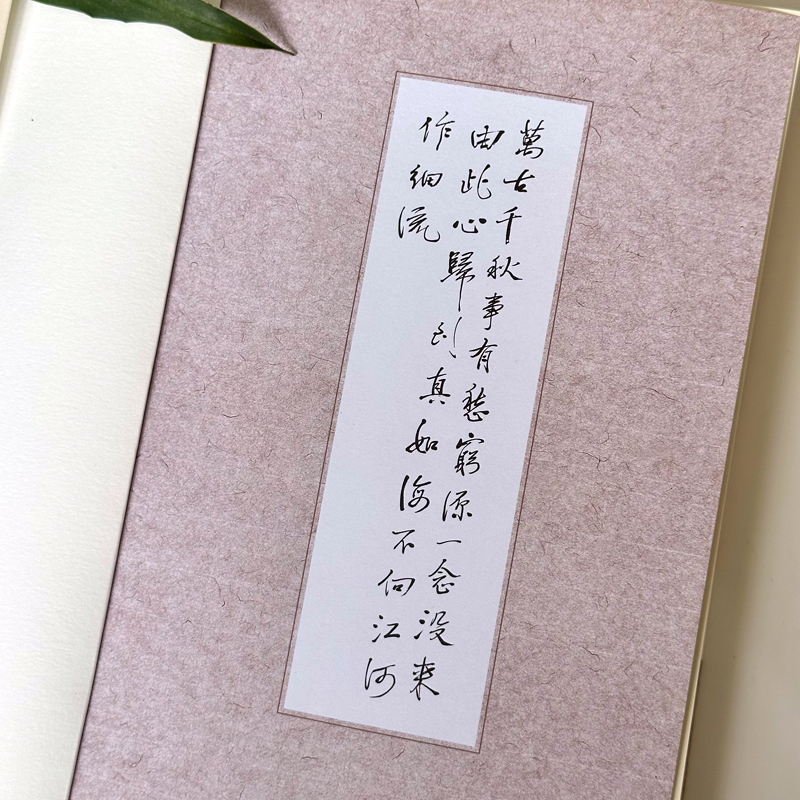 萬古千秋事有愁窮源一念没来
由此心歸到真如海不向江河
作細流